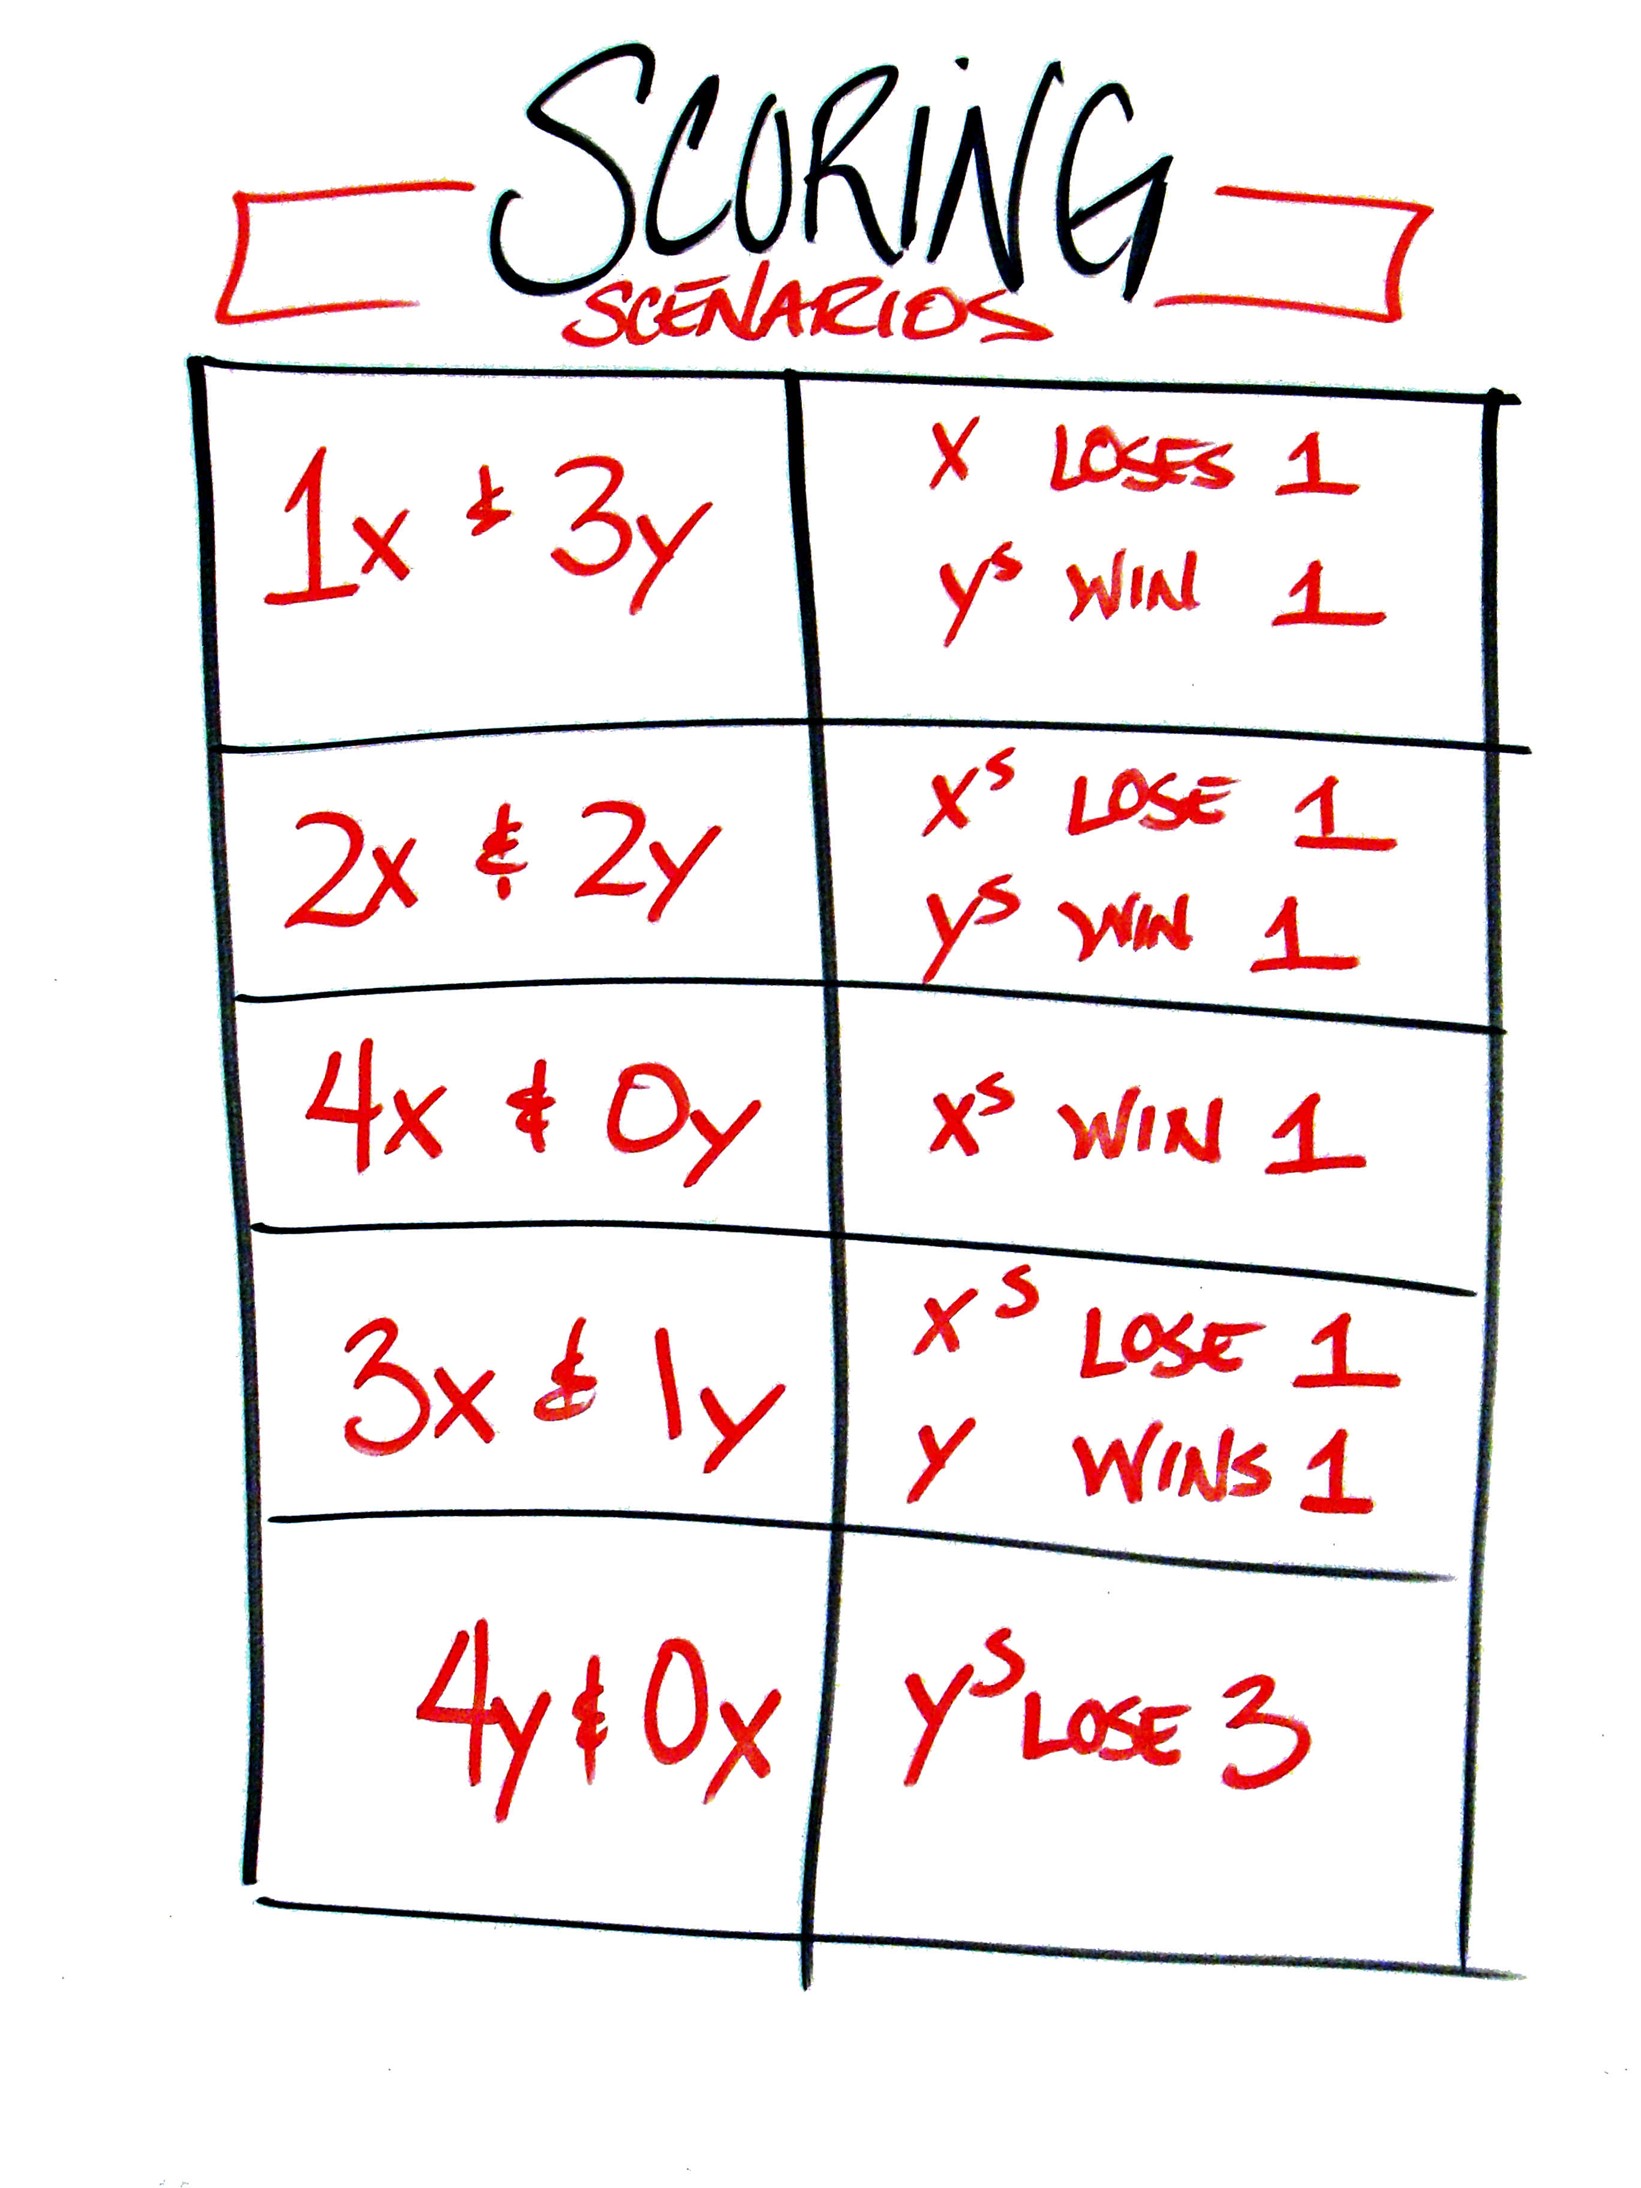 SCORING
SCENARIOS
1x & 3y
x LOSES 1
ys WIN 1
2x & 2y
xs LOSE 1
ys WIN 1
4x & 0y
xs WIN 1
3x & 1y
xs LOSE 1
y WINS 1
4y & 0x
ys LOSE 3